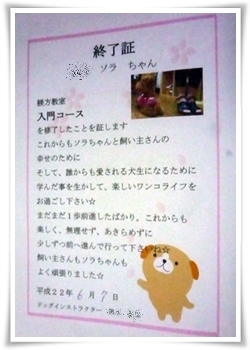 終了証
ソラ ちゃん
躾方教室
入門コース
を修了したことを証します
これからもソラちゃんと飼い主さんの
幸せのために
そして、誰からも愛される犬生になるために
学んだ事を生かして、楽しいワンコライフを
お過ごし下さい☆
まだまだ1歩前進したばかり。これからも
楽しく、無理せず、あきらめずに
少しずつ前へ進んで行って下さいね☆
飼い主さんもソラちゃんも
よく頑張りました☆
平成22年 6月 7日
ドッグインストラクター